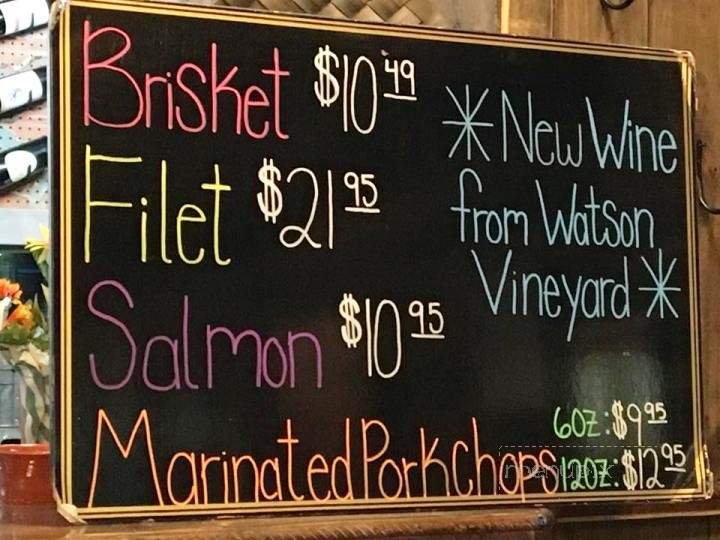 Brisket $10.49
Filet $21.95
Salmon $10.95
Marinated Pork Chops 6oz: $9.95
12oz: $12.95
* New Wine
from Watson
Vineyard *